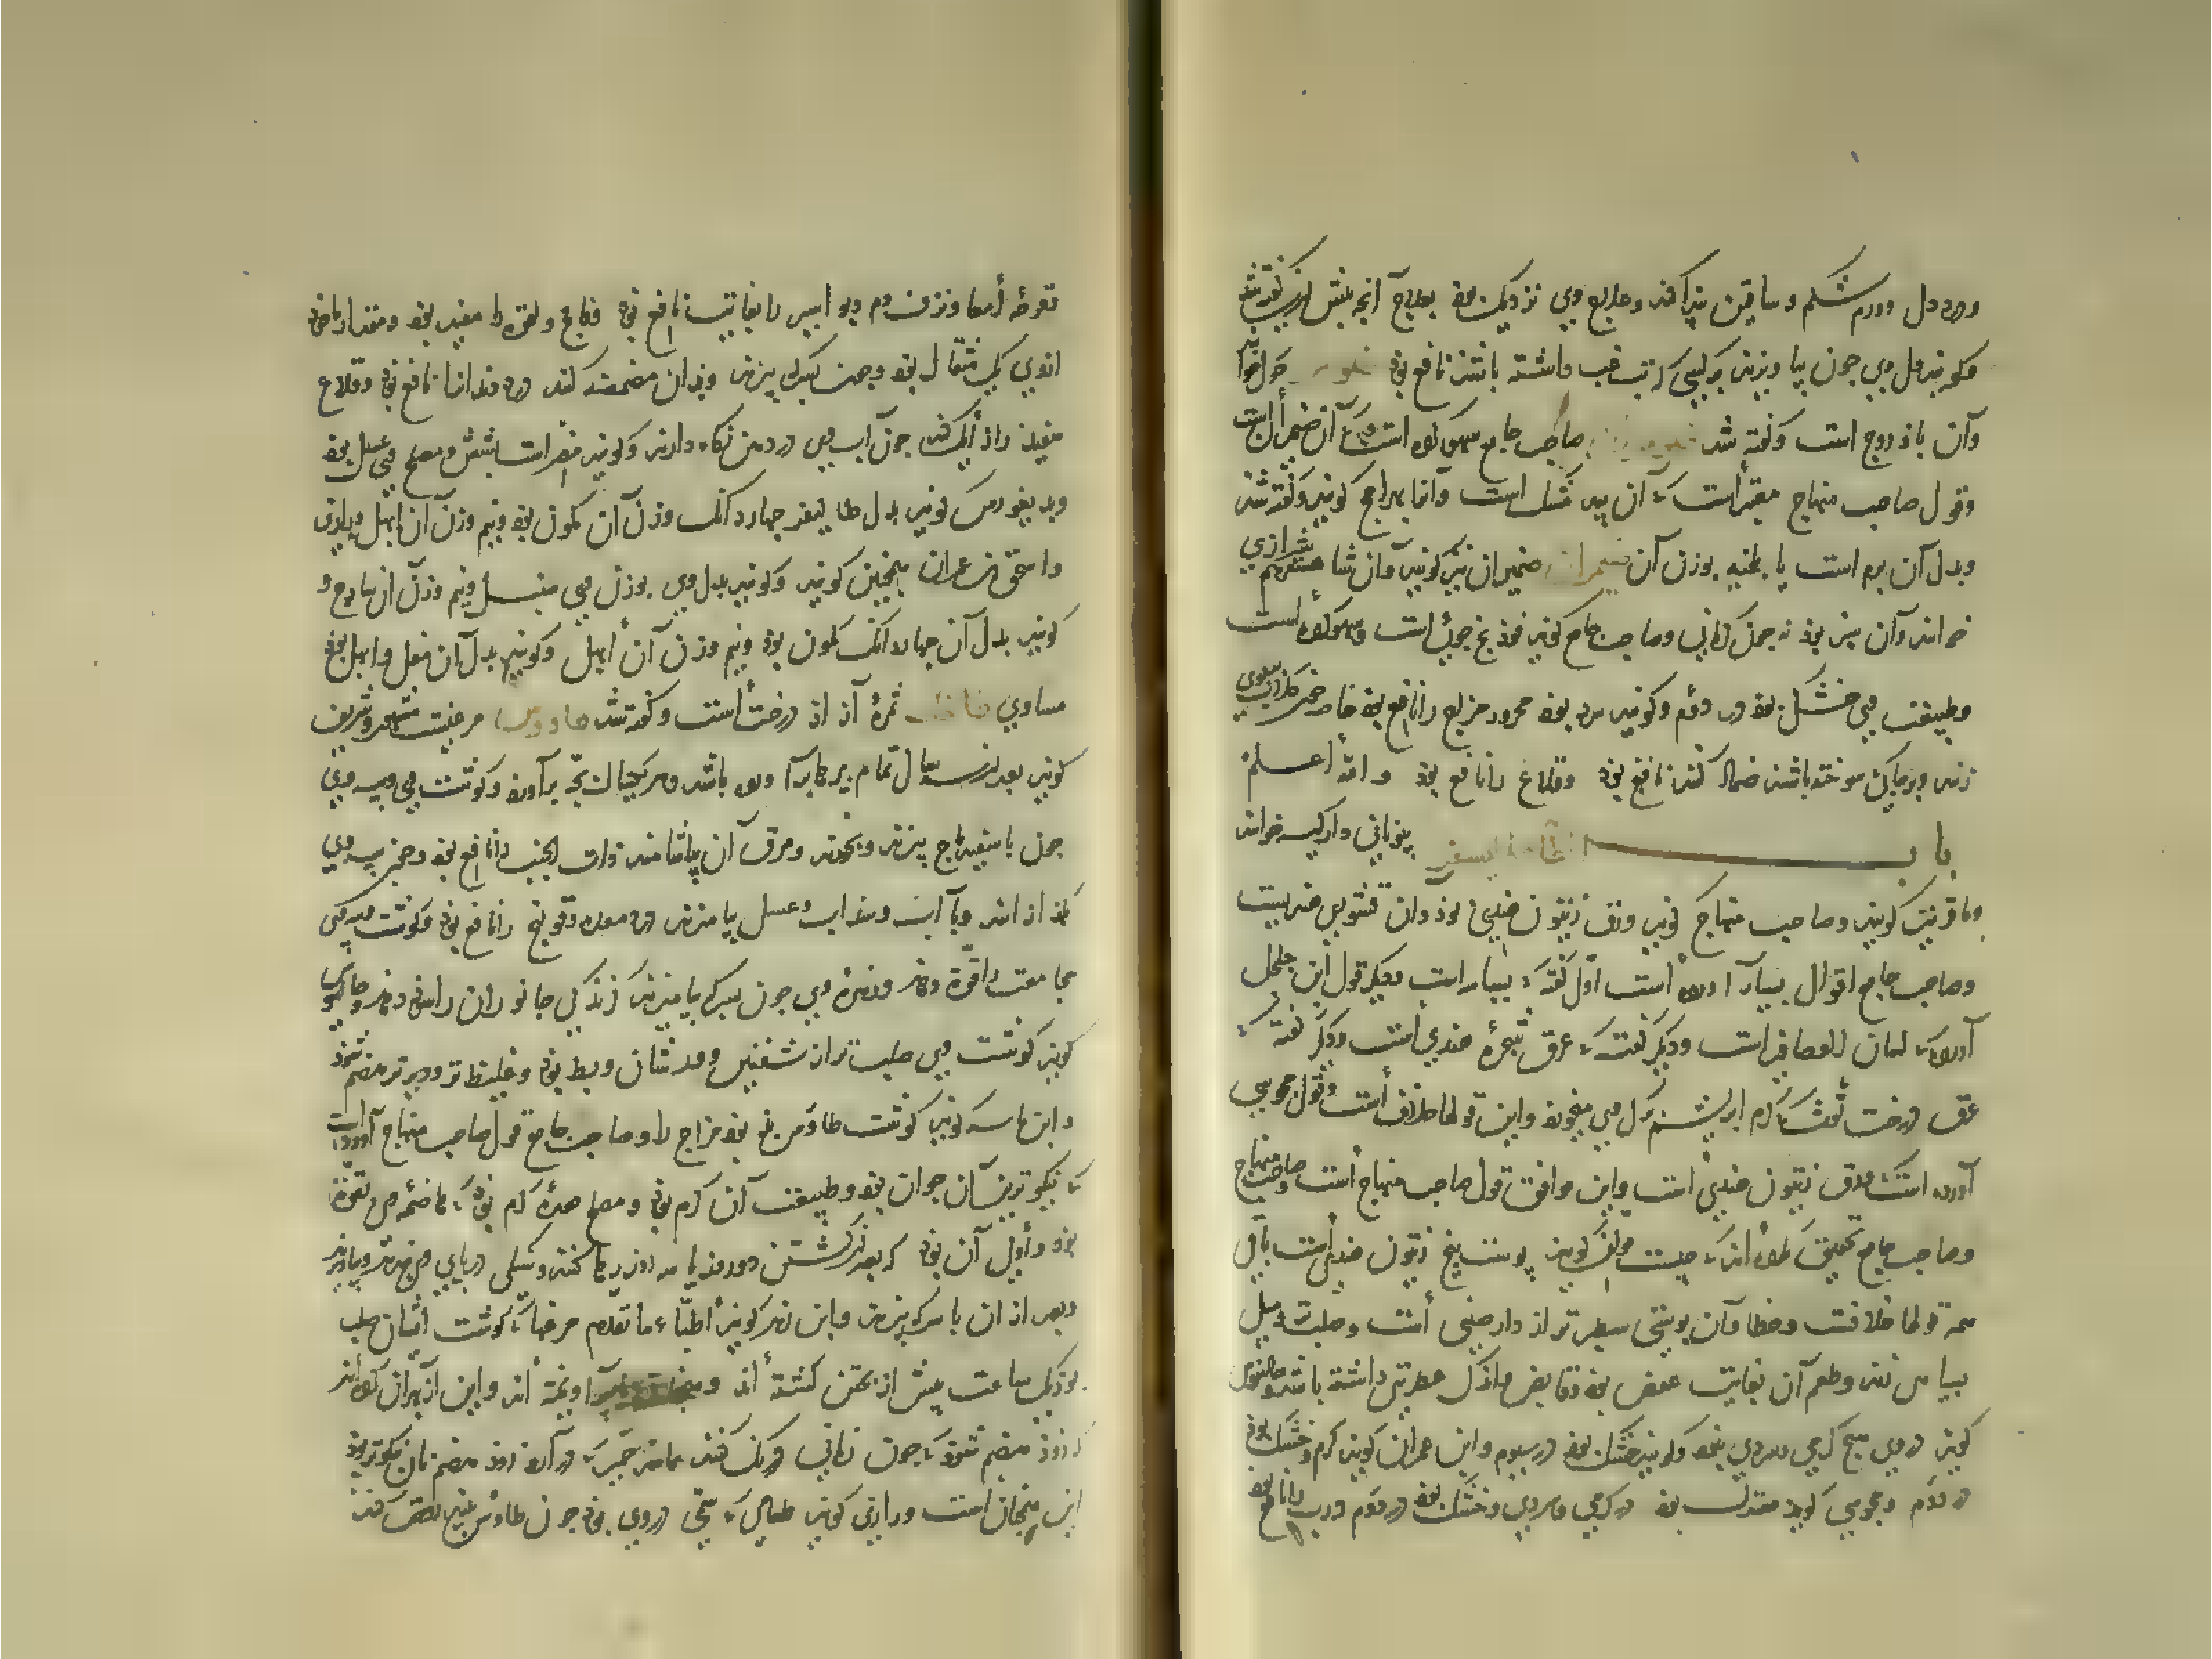 ودرد دل وورم شکم و ساقین پیدا کند وعلاج وی نزدیک بود بعلاج آنچه پیش ازین گفته شد
گویند دل وی چون بیاویزند بر کسی که تب غب داشته باشد نافع بود
وآن باذروج است وگفته شد صاحب جامع سهو کرده است که آن ضیمران است
وقول صاحب منهاج معتبر است که آن بید مشک است وآنرا بهرامج گویند وگفته شد
وبدل آن بوزن آن ضیمران ضمیران نیز گویند وآن شاهسفرم شیرازی
خوانند وآن سبز بود وصاحب جامع گوید فوذنج جویست وسهو کرده است
وطبیعت وی خشک بود در دوم وگویند سرد بود محرور مزاج را نافع بود خاصه چون گلاب بروی
زنند وبر جایگه سوخته باشند ضماد کنند نافع بود وقلاع را نافع بود والله أعلم
باب الطاء طالیسفر بیونانی دارکیسه خوانند
وماقرنیت گویند وصاحب منهاج گوید ورق زیتون هندی بود وآن قشور هندیست
وصاحب جامع اقوال بسیار آورده است اول گفته که بسباسه است ودیگر قول ابن جلجل
آورده که لسان العصافیر است ودیگر گفته که عرق شجرهٔ هندی است ودیگر گفته که
عرق درخت توث که کرم ابریشم برگ وی میخورد واین قولها خلاف است وقول مجوسی
آورده است که ورق زیتون هندی است واین موافق قول صاحب منهاج است وصاحب منهاج
وصاحب جامع تحقیق نکرده اند که چیست مؤلف گوید پوست بیخ زیتون هندی است باقی
همه قولها خلافست وخطا وآن پوستی سطبرتر از دارصینی است وصلب ومیل
بسیاهی زند وطعم آن بغایت عفص بود وقابض واندک عطریتی داشته باشد وجالینوس
گوید در وی هیچ گرمی وسردی نبود وگویند خشک بود در سیوم وابن عمران گوید گرم وخشک بود
در دوم ومجوسی گوید معتدل بود در گرمی وسردی وخشک بود در دوم ورب را نافع بود
قرحهٔ أمعا ونزف دم وبواسیر را بغایت نافع بود فالج ولقوه را مفید بود ومقدار ماخوذ
ازوی یک مثقال بود وچون بسرکه بپزند وبدان مضمضه کنند درد دندانرا نافع بود وقلاع
سفید را زایل کند چون آب وی در دهن نگاه دارند وگویند مضر است بشش ومصلح وی عسل بود
ودیسقوریدس گوید بدل طالیسفر چهار دانگ وزن آن کمون بود ونیم وزن آن ابهل ورازی
واسحق بن عمران همچنین گویند وگویند بدل وی بوزن وی سنبل ونیم وزن آن ساذج و
گویند بدل آن چهار دانگ کمون بود ونیم وزن آن أبهل وگویند بدل آن مقل وابهل بود
مساوی ثمرهٔ آزاد درخت است وگفته شد طاووس مرغیست مشهور وشریف
گویند بعد از سه سال تمام پر وبال برآورده باشد وهر یکسال بچه برآورد وگوشت وی وپیه وی
چون با سفیدباج بپزند وبخورند ومرق آن بیاشامند ذات الجنب را نافع بود وچون پیه وی
بگدازانند وبا آب سداب وعسل بیامیزند درد معده وقولنج را نافع بود وگوشت وپیه وی
مجامعت را قوت دهد وزهرهٔ وی چون بسرکه بیامیزند گزندگی جانوران را سود دهد وجالینوس
گوید گوشت وی صلب تر از شفنین وورشان وبط بود وغلیظ تر ودیرتر هضم شود
وابن ماسه گوید گوشت طاوس بد بود مزاج را وصاحب جامع قول صاحب منهاج آورده است
که نیکوترین آن جوان بود وطبیعت آن گرم بود ومصلح معدهٔ گرم بود که هاضمهٔ وی بقوت
بود وأولی آن بود که بعد از کشتن دو روز یا سه روز رها کنند وسنگی در پای وی بندند وبیاویزند
وبعد از آن با سرکه بپزند وابن زهر گوید أطباء ما تقدم مرغها که گوشت ایشان صلب
بود یک ساعت پیش از پختن کشته اند آویخته اند واین از بهر آن کرده اند
که زود هضم شود که چون زمانی درنگ کنند همانند خمیر که در آرد زود هضم نان نیکوتر بود
این همچنان است ورازی گوید طعامی که سختی در وی بود چون طاوس